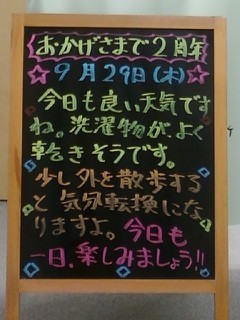 おかげさまで2周年
☆9月29日(木)☆
今日も良い天気です
ね。洗濯物が、よく
乾きそうです。
少し外を散歩する
と気分転換にな
りますよ。今日も
一日、楽しみましょう!!